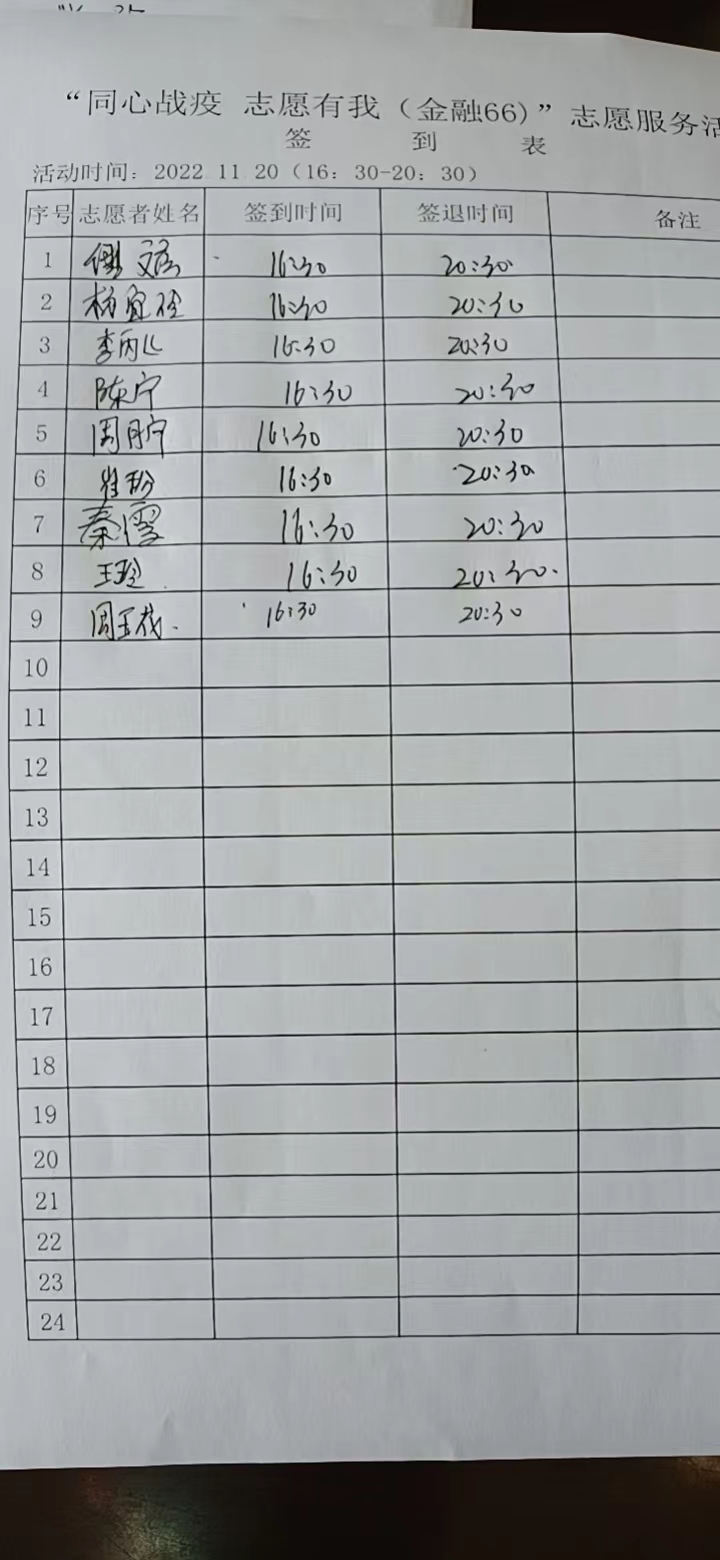 “同心战疫 志愿有我（金融66）”志愿服务活
签 到 表
活动时间：2022 11 20（16：30-20：30）
序号 志愿者姓名 签到时间 签退时间 备注
1 16:30 20:30
2 16:30 20:30
3 李丙 16:30 20:30
4 陈宁 16:30 20:30
5 周 16:30 20:30
6 崔 16:30 20:30
7 秦雪 16:30 20:30
8 王 16:30 20:30
9 周玉 16:30 20:30
10
11
12
13
14
15
16
17
18
19
20
21
22
23
24